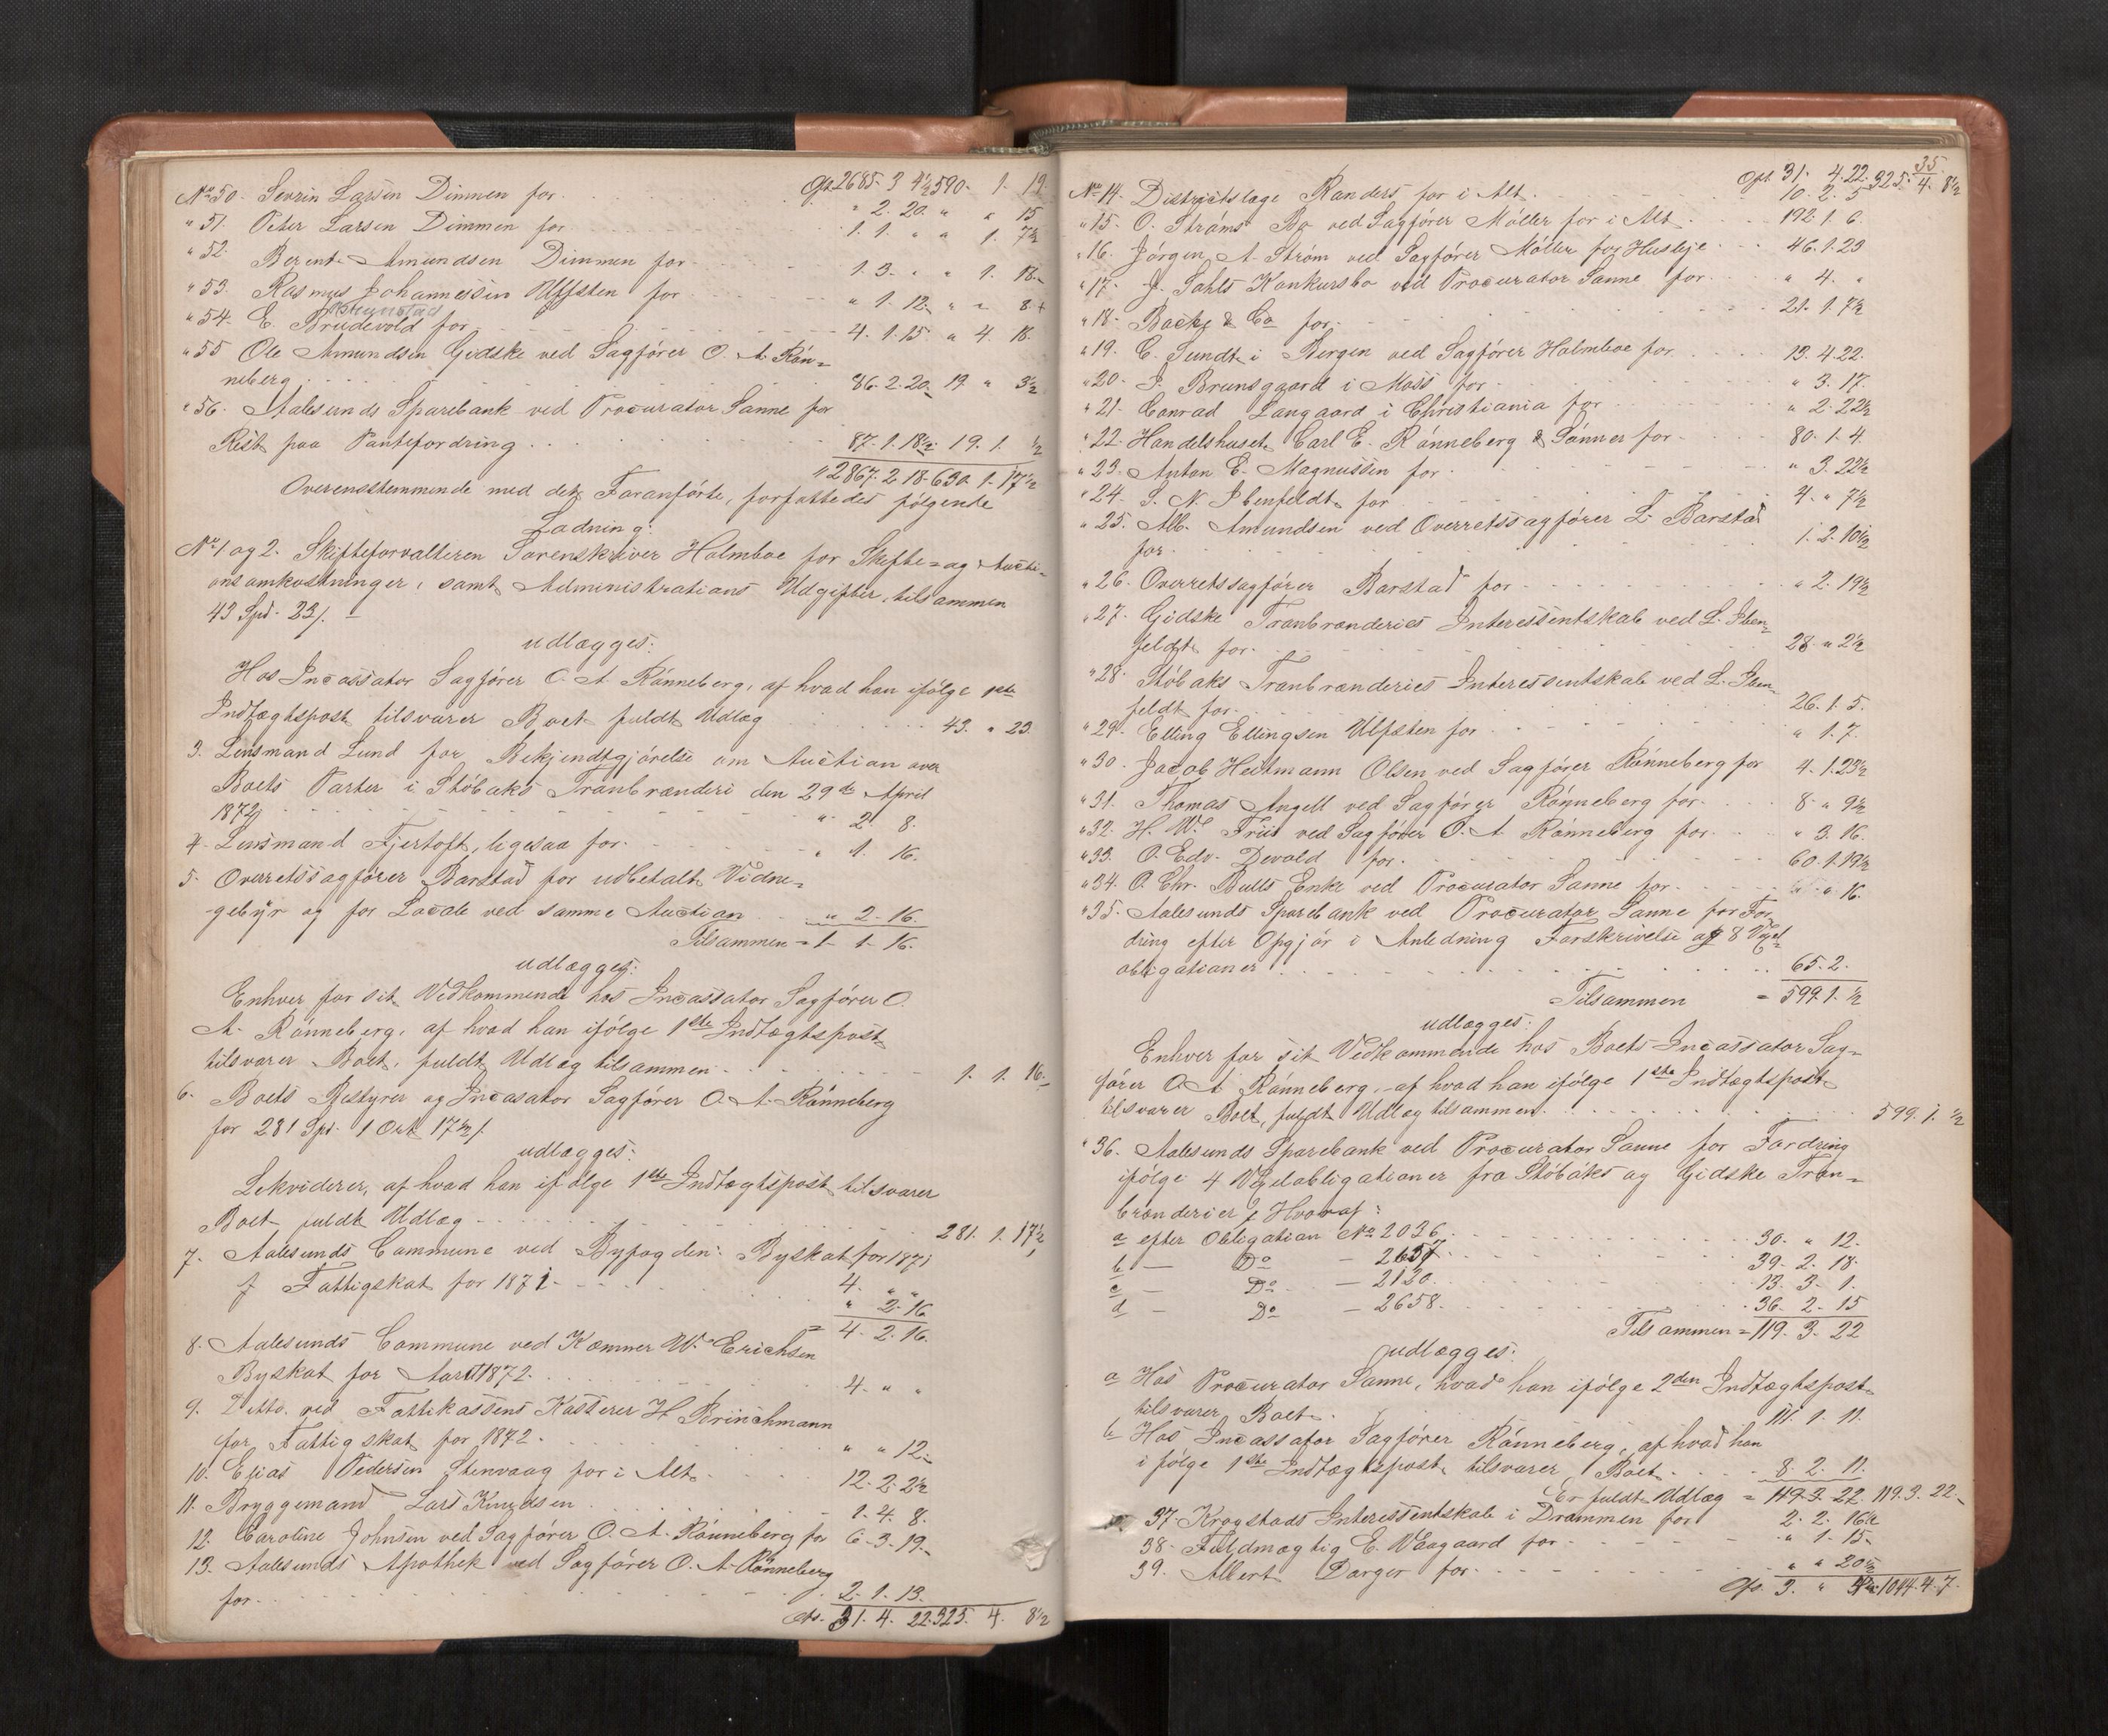 No 50. Sevrin Larsen Dimmen for . . . Opt. 2685. 3 4½ 590. 1. 19
" 51. Peter Larsen Dimmen for . . . " 2. 20. " " 15
" 52. Berent Amundsen Dimmen for . . . 1. 1. " " 1. 7½
" 53. Rasmus Johannessen Ulfsten for . . . 1. 3. " " 1. 18.
" 54. E. Brudevold for . . . " 1. 12. " " 8
" 55 Ole Amundsen Gidske ved Sagfører O. A. Røn= 4. 1. 15. " 4. 18.
neberg . . . 86. 2. 20. 19. " 3½
" 56. Aalesunds Sparebank ved Procurator Sanne for
Rest paa Pantefordring . . . 87. 1. 18½ 19. 1. ½
" 2867. 2. 18. 630. 1. 17½
Overensstemmende med det Foranførte, forfattedes følgende
Lodning:
No 1 og 2. Skifteforvalteren Sorenskriver Holmboe for Skifte= og Aucti=
onsomkostninger, samt Administrations Udgifter, tilsammen
43 Spd. 23 s.
udlægges:
Hos Incassator Sagfører O. A. Rønneberg, af hvad han ifølge 1ste
Indtægtspost tilsvarer Boet fuldt Udlæg . . . 43. " 23.
3. Lensmand Lund for Bekjendtgjørelse om Auction over
Boets Parter i Støbaks Tranbrænderi den 29de April
1872 . . . " 2. 8.
4. Lensmand Fjertoft, ligesaa for . . . " 1. 16.
5. Overretssagfører Barstad for udbetalt Vidne=
gebyr og for Locale ved samme Auction . . . " 2. 16.
Tilsammen = 1. 1. 16.
udlægges:
Enhver for sit Vedkommende hos Incassator Sagfører O.
A. Rønneberg, af hvad han ifølge 1ste Indtægtspost
tilsvarer Boet, fuldt Udlæg tilsammen . . . 1. 1. 16.
6. Boets Bestyrer og Incasator Sagfører O. A. Rønneberg
for 281 Spd. 1 Ort 17½ s.
udlægges:
Lekviderer, af hvad han ifølge 1ste Indtægtspost tilsvarer
Boet fuldt Udlæg . . . 281. 1. 17½
7. Aalesunds Commune ved Byfogden: Byskat for 1871
f Fattigskat for 1871 . . . 4. " "
" 2. 16
= 4. 2. 16.
8. Aalesunds Commune ved Kæmner W. Erichsen
Byskat for Aaret 1872 . . . 4. " "
9. Ditto. ved Fattikassens Kasserer H. Brinchmann
for Fattigskat for 1872 . . . " " 12.
10. Elias Pedersen Stenvaag for i Alt . . . 12. 2. 2½
11. Bryggemand Lars Knudsen . . . 1. 4. 8.
12. Caroline Johnsen ved Sagfører O. A. Rønneberg for 6. 3. 19.
13. Aalesunds Apothek ved Sagfører O. A. Rønneberg
for . . . 2. 1. 13.
Opt. 31. 4. 22. 325. 4. 8½
35
Opt. 31. 4. 22. 325. 4. 8½
No 14. Districtslæge Randers for i Alt . . . 10. 2. 5
" 15. O. Strøms Bo ved Sagfører Møller for i Alt . . . 192. 1. 6.
" 16. Jørgen A. Strøm ved Sagfører Møller for Husleje . . . 46. 1. 23
" 17. J. Sahls Konkursbo ved Procurator Sanne for . . . " 4. "
" 18. Backe & Co for . . . 21. 1. 7½
" 19. C. Sundt i Bergen ved Sagfører Holmboe for . . . 13. 4. 22.
" 20. P. Brunsgaard i Moss for . . . " 3. 17.
" 21. Conrad Langaard i Christiania for . . . " 2. 22½
" 22. Handelshuset Carl E. Rønneberg & Sønner for . . . 80. 1. 4.
" 23. Anton E. Magnussen for . . . " 3. 22½
" 24. S. N. Ibenfeldt for . . . 4. " 7½
" 25. Alb. Amundsen ved Overretssagfører L. Barstad
for . . . 1. 2. 10½
" 26. Overretssagfører Barstad for . . . " 2. 19½
" 27. Gidske Tranbrænderies Interessentskab ved L. Iben=
feldt for . . . 28. " 2½
" 28. Støbaks Tranbrænderies Interessentskab ved L. Iben=
feldt for . . . 26. 1. 5.
" 29. Elling Ellingsen Ulfsten for . . . " 1. 7.
" 30. Jacob Heitmann Olsen ved Sagfører Rønneberg for 4. 1. 23½
" 31. Thomas Angell ved Sagfører Rønneberg for . . . 8. " 9½
" 32. H. W. Friis ved Sagfører O. A. Rønneberg for . . . " 3. 16.
" 33. O. Edv. Devold for . . . 60. 1. 19½
" 34. O. Chr. Bulls Enke ved Procurator Sanne for . . . " 16.
" 35. Aalesunds Sparebank ved Procurator Sanne for For
dring efter Opgjør i Anledning Forskrivelse af 8 Vexel=
obligationer . . . 65. 2.
Tilsammen = 599. 1. ½
udlægges:
Enhver for sit Vedkommende hos Boets Incassator Sag=
fører O. A. Rønneberg, af hvad han ifølge 1ste Indtægtspost
tilsvarer Boet, fuldt Udlæg tilsammen . . . 599. 1. ½
" 36. Aalesunds Sparebank ved Procurator Sanne for Fordring
ifølge 4 Vexelobligationer fra Støbaks og Gidske Tran=
brænderier, Hvoraf:
a efter Obligation No 2036 . . . 30. " 12.
b — Do — 2657 . . . 39. 2. 18.
c — Do — 2120 . . . 13. 3. 1.
d — Do — 2658 . . . 36. 2. 15
Tilsammen = 119. 3. 22
udlægges:
a Hos Procurator Sanne, hvad han ifølge 2den Indtægtspost
tilsvarer Boet . . . 111. 1. 11.
b Hos Incassator Sagfører Rønneberg, af hvad han
ifølge 1ste Indtægtspost tilsvarer Boet . . . 8. 2. 11.
Er fuldt Udlæg = 119. 3. 22. 119. 3. 22.
37. Krogstads Interessentskab i Drammen for 2. 2. 16½
38. Fuldmægtig E. Waagaard for . . . " 1. 15.
39. Albert Dorger for . . . " " 20½
Opt. 3. " 1044. 4. 7.